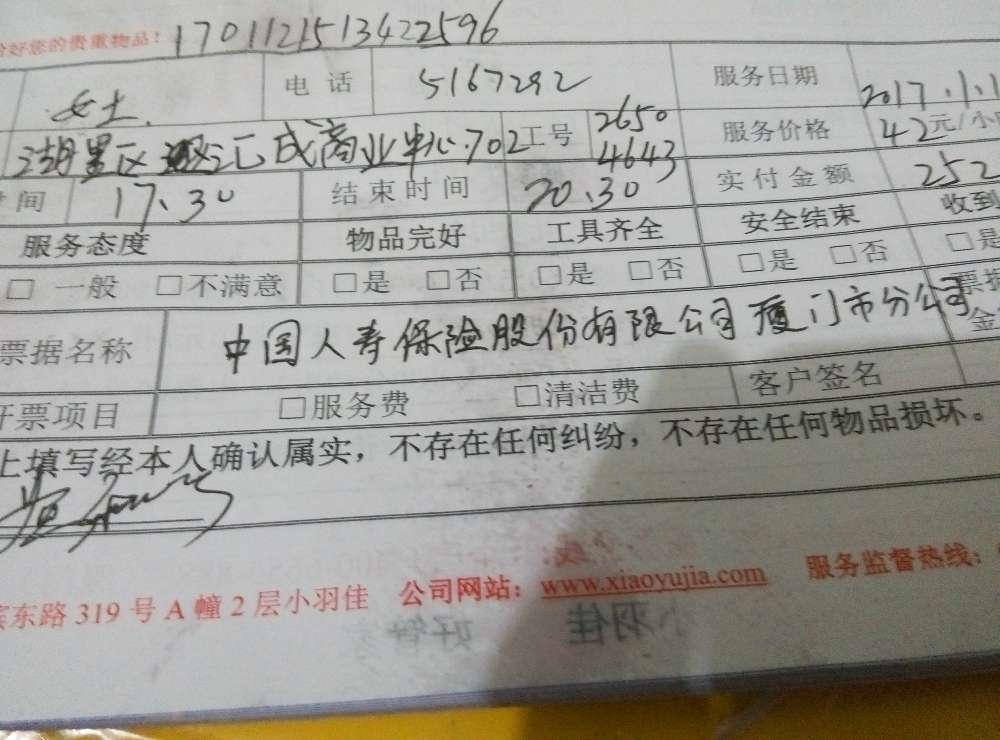 好您的贵重物品！ 170112151342​2596
女士. 电话 5167292 服务日期 2017.1.1
湖里区 汇成商业中心.702 工号 2650 4643 服务价格 42元/小
间 17.30 结束时间 20.30 实付金额 252
服务态度 物品完好 工具齐全 安全结束 收到
□ 一般 □不满意 □是 □否 □是 □否 □是 □否 □是
票据名称 中国人寿保险股份有限公司厦门市分公司 票据 金
开票项目 □服务费 □清洁费 客户签名
上填写经本人确认属实，不存在任何纠纷，不存在任何物品损坏。
东路 319 号 A 幢 2 层小羽佳 公司网站：www.xiaoyujia.com 服务监督热线：